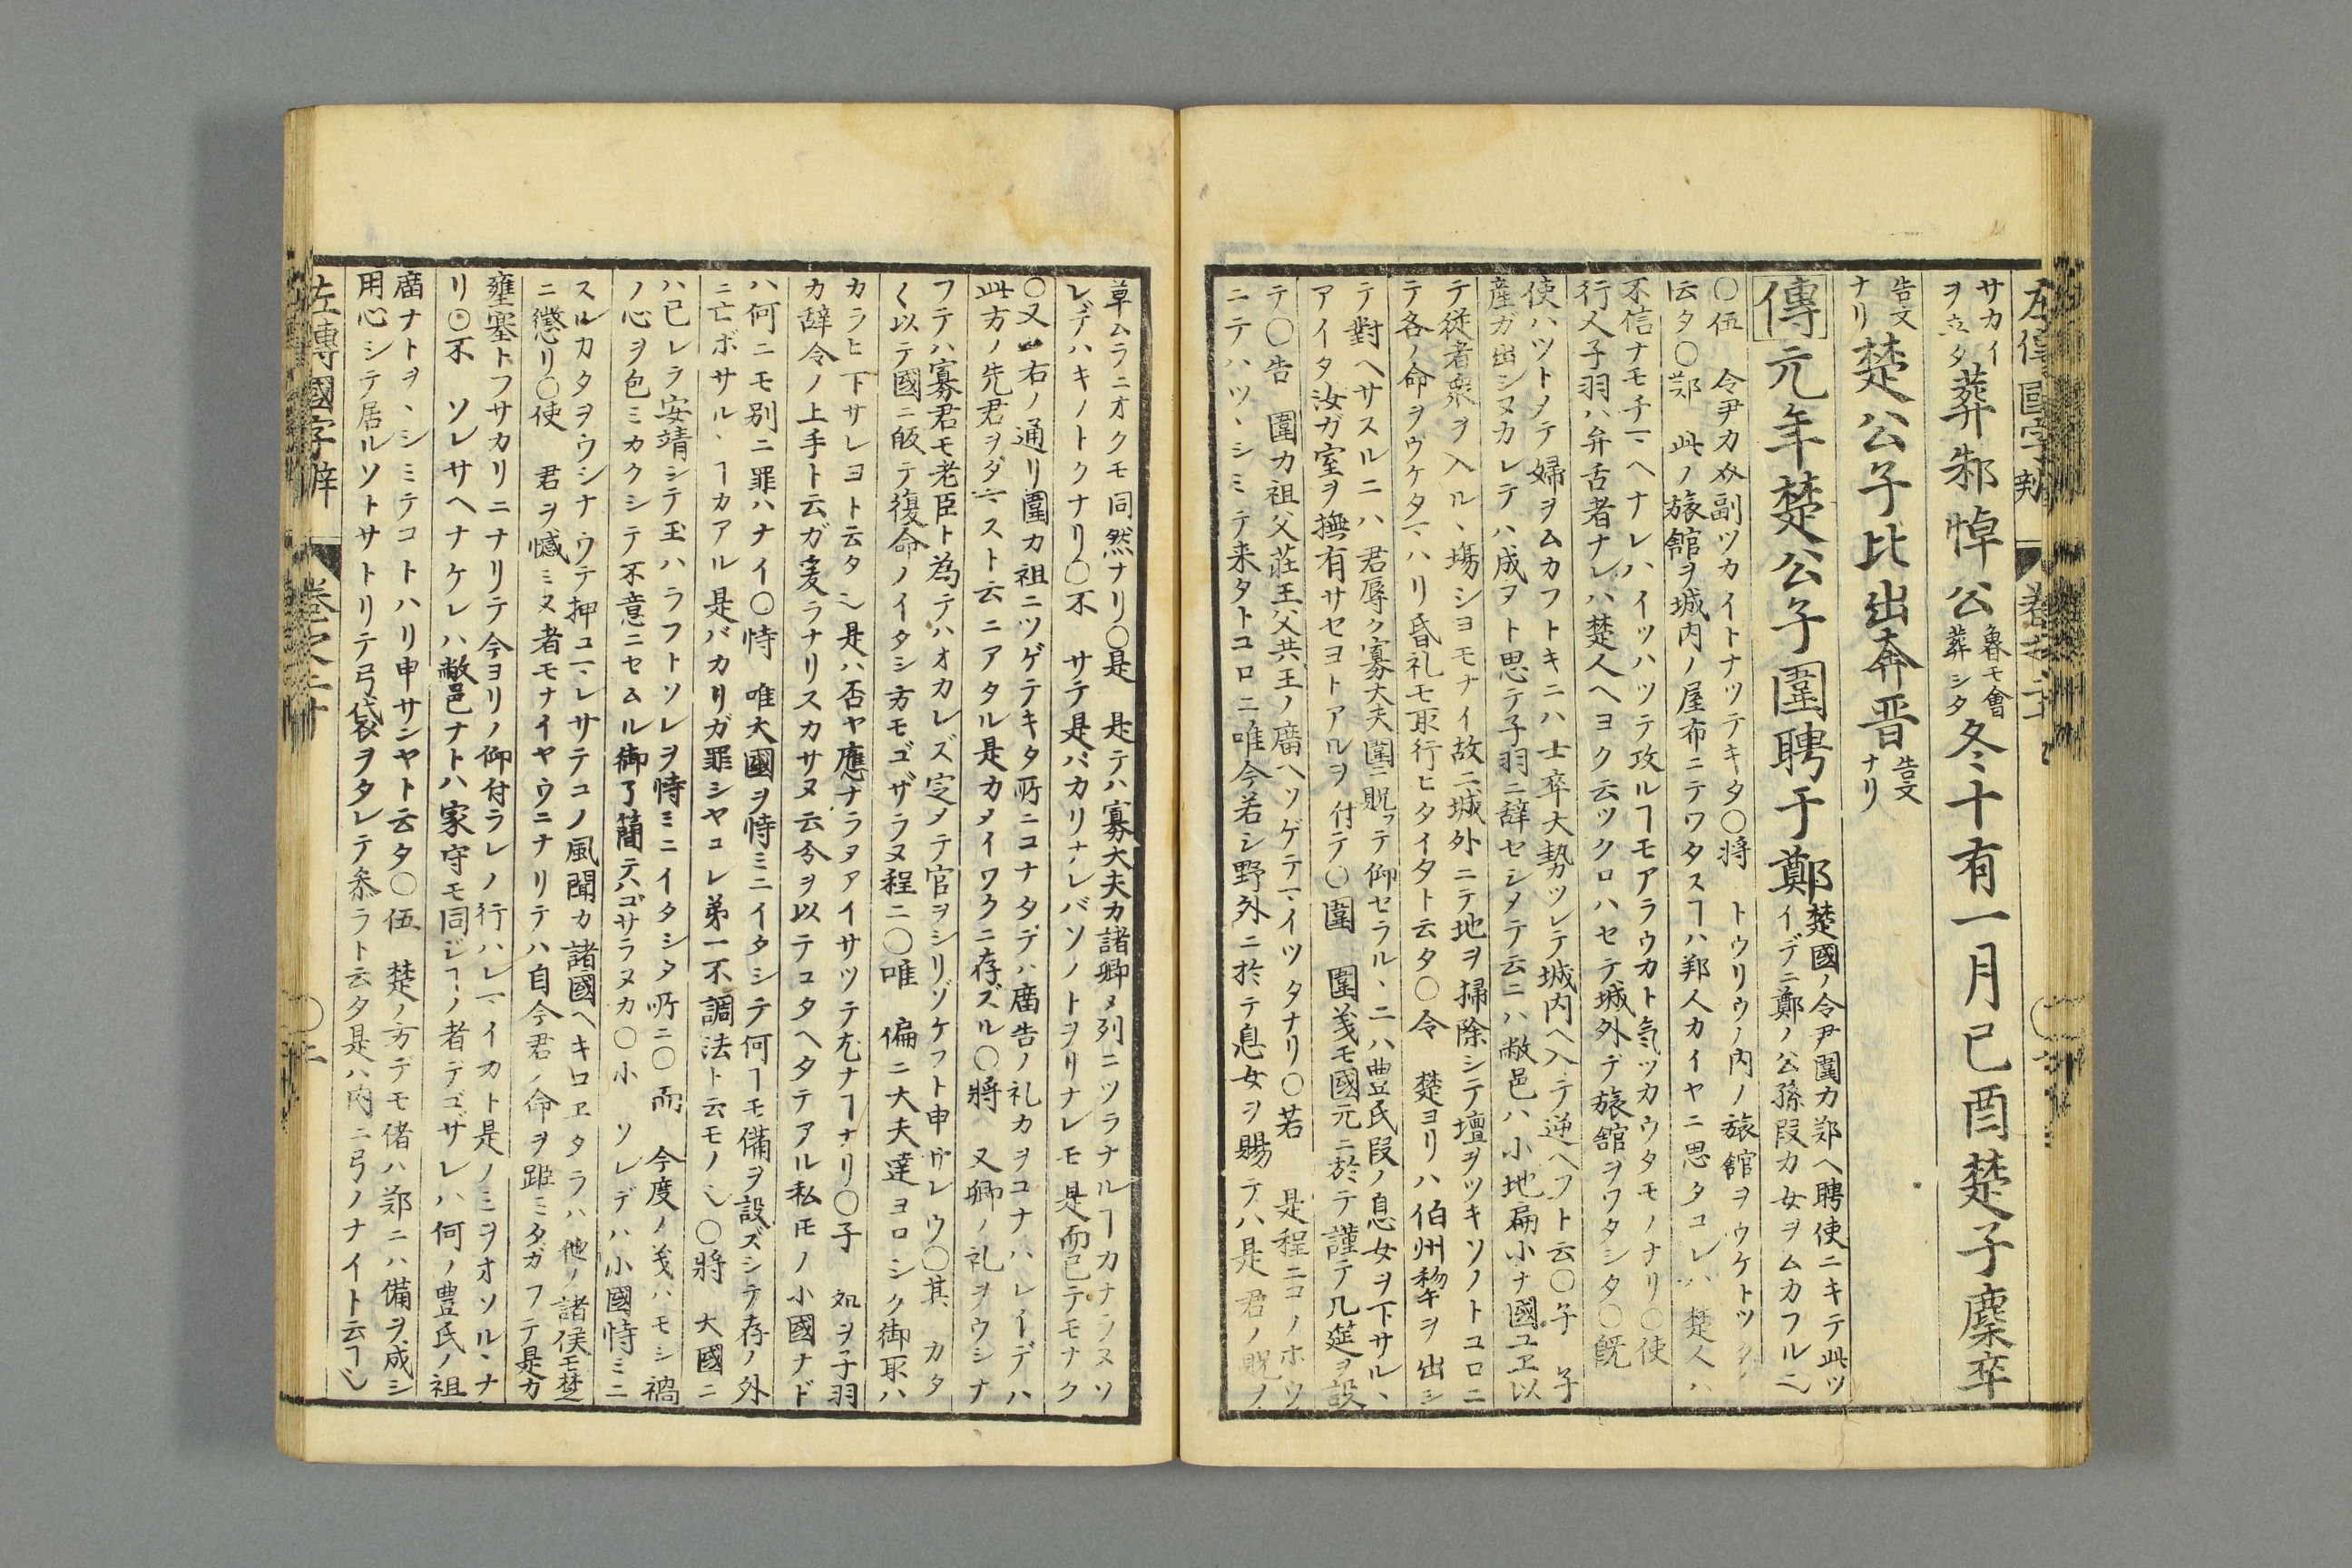 サカイ
ヲ立タ
葬邾悼公
魯モ會
葬シタ
冬十有一月己酉楚子麇卒
告文
ナリ
楚公子比出奔晋
告文
ナリ
傳元年楚公子圍聘于鄭
楚國ノ令尹圍カ郑ヘ聘使ニキテ此ツ
イデニ鄭ノ公孫段カ女ヲムカフル〆
○伍 令尹カ
副ツカイトナツテキタ○將 トウリウノ内ノ旅舘ヲウケトツタ
云タ○郑 此ノ旅舘ヲ城内ノ屋布ニテワタスヿハ郑人カイヤニ思タコレハ楚人ハ
不信ナモチ ヘナレハイツハツテ攻ルヿモアラウカト気ツカウタモノナリ○使
行人子羽ハ弁舌者ナレハ楚人ヘヨク云ツクロハセテ城外デ旅舘ヲワタシタ○既
使ハツトメテ婦ヲムカフトキニハ士卒大勢ツレテ城内ヘ入テ逆ヘフト云○子 子
産ガ出シヌカレテハ成ヲト思テ子羽ニ辞セシメテ云ニハ敝邑ハ小地扁小ナ國ユヱ以
テ従者衆ヲ入ル、塲シヨモナイ故ニ城外ニテ地ヲ掃除シテ壇ヲツキソノトコロニ
テ各ノ命ヲウケタ ハリ昏礼モ取行ヒタイタト云タ○令 楚ヨリハ伯州犂ヲ出シ
テ對ヘサスルニハ君辱ク寡大夫圍ニ貺ッテ仰セラル、ニハ豊氏段ノ息女ヲ下サル、
アイタ汝ガ室ヲ撫有サセヨトアルヲ付テ○圍 圍義モ國元ニ於テ謹テ几筵ヲ設
テ○告 圍カ祖父荘王父共王ノ廣ヘツゲテ イツタナリ○若 是程ニコノホウ
ニテハツ、シミテ来タトコロニ唯今若シ野外ニ於テ息女ヲ賜テハ是君ノ貺ノ
草ムラニオクモ同然ナリ○是 是テハ寡大夫カ諸卿ノ列ニツラナルヿカナラヌソ
レデハキノトクナリ○不 サテ是バカリナレバソノトヲリナレモ是而已テモナク
○又 右ノ通リ圍カ祖ニツゲテキタ所ニコナタデハ廣告ノ礼カヲコナハレイデハ
此方ノ先君ヲダ スト云ニアタル是カメイワクニ存ズル○將 又卿ノ礼ヲウシナ
フテハ寡君モ老臣ト為テハオカレズ定メテ官ヲシリゾケフト申サレウ○其 カタ
ク以テ國ニ皈テ復命ノイタシ方モゴザラヌ程ニ○唯 偏ニ大夫達ヨロシク御取ハ
カラヒ下サレヨト云タ〆是ハ否ヤ應ナラヌアイサツテ尤ナヿナリ○子 如ヲ子羽
カ辞令ノ上手ト云ガ爰ラナリスカサヌ云分ヲ以テコタヘタテアル私モノ小國ナド
ハ何ニモ別ニ罪ハナイ○恃 唯大國ヲ恃ミニイタシテ何ヿモ備ヲ設ズシテ存ノ外
ニ亡ボサル、ヿカアル是バカリガ罪シヤコレ弟一不調法ト云モノ〆○將 大國ニ
ハ己レラ安靖シテ玉ハラフトソレヲ恃ミニイタシタ所ニ○而 今度ノ義ハモシ禍
ノ心ヲ包ミカクシテ不意ニセムル御了簡テハゴサラヌカ○小 ソレデハ小國恃ミニ
スルカタヲウシナウテ押ユ レサテコノ風聞カ諸國ヘキコヱタラハ他ノ諸侯モ楚
ニ懲リ○使 君ヲ憾ミヌ者モナイヤウニナリテハ自今君ノ命ヲ距ミタガフテ是カ
壅塞トフサカリニナリテ今ヨリノ仰付ラレノ行ハレ イカト是ノミヲオソル、ナ
リ○不 ソレサヘナケレハ敝邑ナトハ家守モ同ジヿノ者デゴザレハ何ノ豊氏ノ祖
廣ナトヲ、シミテコトハリ申サンヤト云タ○伍 楚ノ方デモ偖ハ郑ニハ備ヲ成シ
用心シテ居ルソトサトリテ弓袋ヲタレテ参ラト云タ是ハ内ニ弓ノナイト云ヿ〆
左傳國字辨 卷之二十